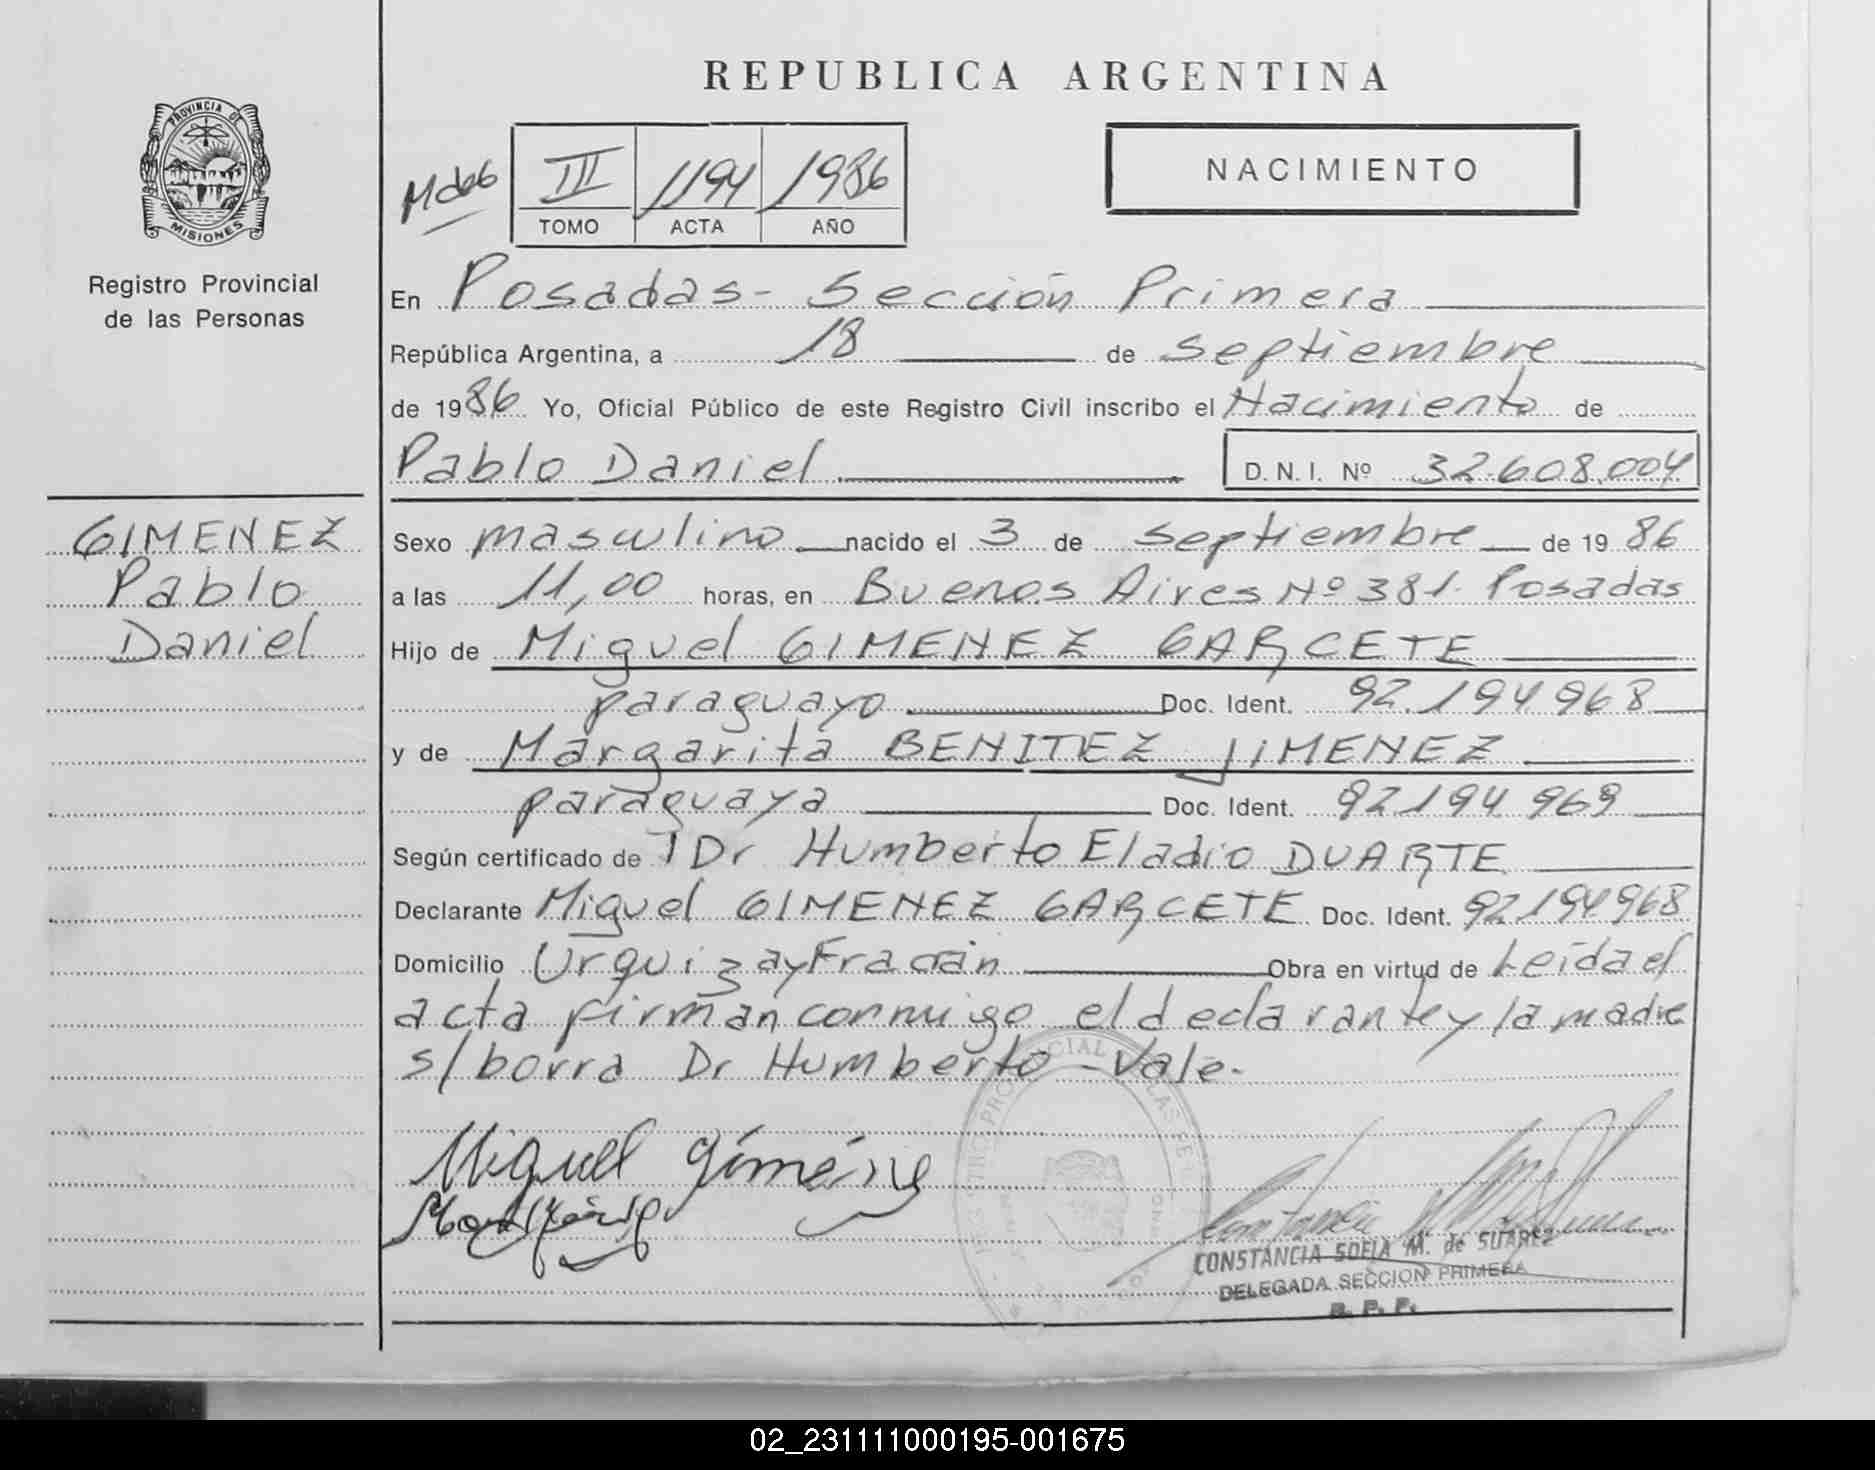 REPUBLICA ARGENTINA
PROVINCIA DE
MISIONES
Registro Provincial
de las Personas
III 1194 1986
TOMO ACTA AÑO
NACIMIENTO
En Posadas - Sección Primera
República Argentina, a 18 de septiembre
de 1986 Yo, Oficial Público de este Registro Civil inscribo el Nacimiento de
Pablo Daniel D. N. I. Nº 32.608.004
GIMENEZ
Pablo
Daniel
Sexo masculino nacido el 3 de septiembre de 1986
a las 11,00 horas, en Buenos Aires Nº 381. Posadas
Hijo de Miguel GIMENEZ GARCETE
paraguayo Doc. Ident. 92.194.968
y de Margarita BENITEZ JIMENEZ
paraguaya Doc. Ident. 92194.969
Según certificado de Dr Humberto Eladio DUARTE
Declarante Miguel GIMENEZ GARCETE Doc. Ident. 92.194968
Domicilio Urquiza y Fracrán Obra en virtud de Leída el
acta firman conmigo el declarante y la madre
s/borra Dr Humberto - Vale.
Miguel Giménez
CONSTANCIA SOFIA M. de SUAREZ
DELEGADA SECCION PRIMERA
R. P. P.
02_231111000195-001675